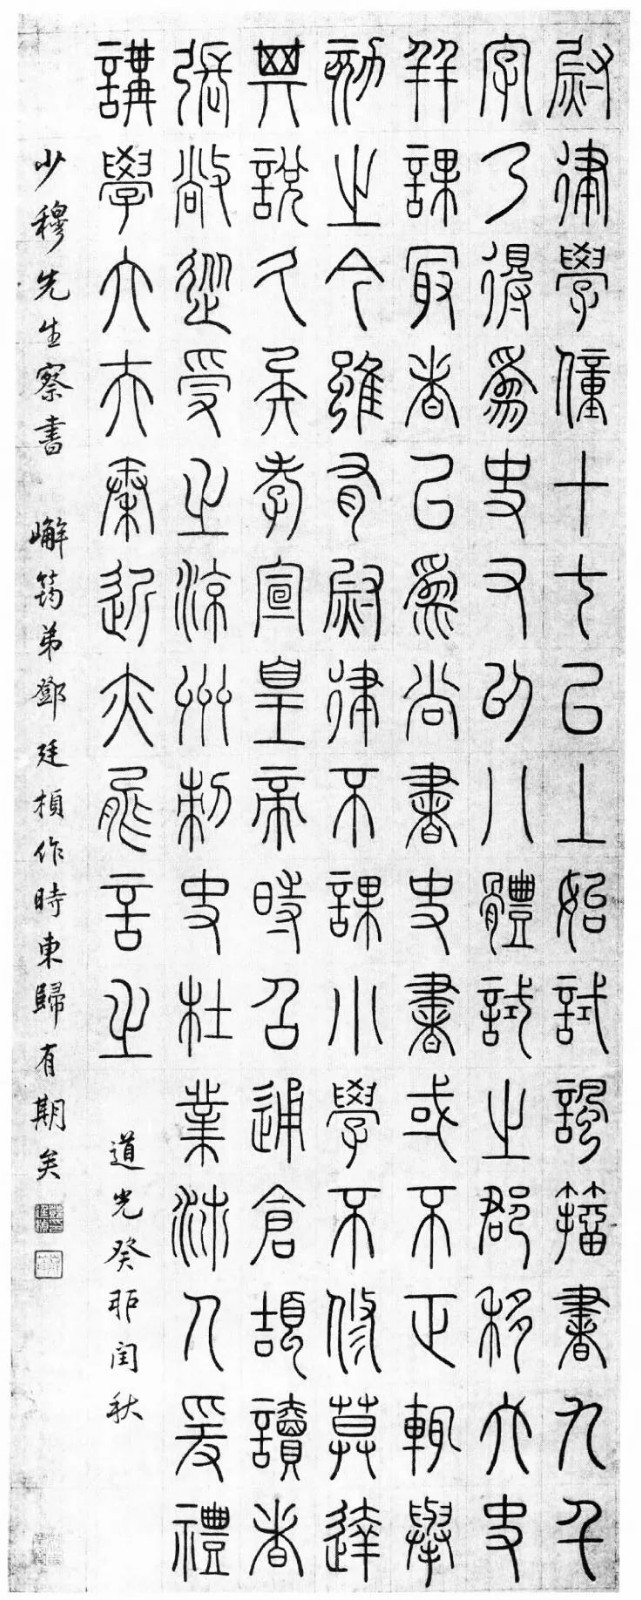 尉律學僮十七以上始試諷籀書九千
字乃得爲史又以八體試之郡移大史
并課最者以爲尚書史書或不正輒舉
劾之今雖有尉律不課小學不修莫達
其說久矣孝宣皇帝時召通倉頡讀者
張敞從受之涼州刺史杜業沛人爰禮
講學大夫秦近亦能言之
道光癸卯閏秋
少穆先生察書 嶰筠弟鄧廷楨作時東歸有期矣